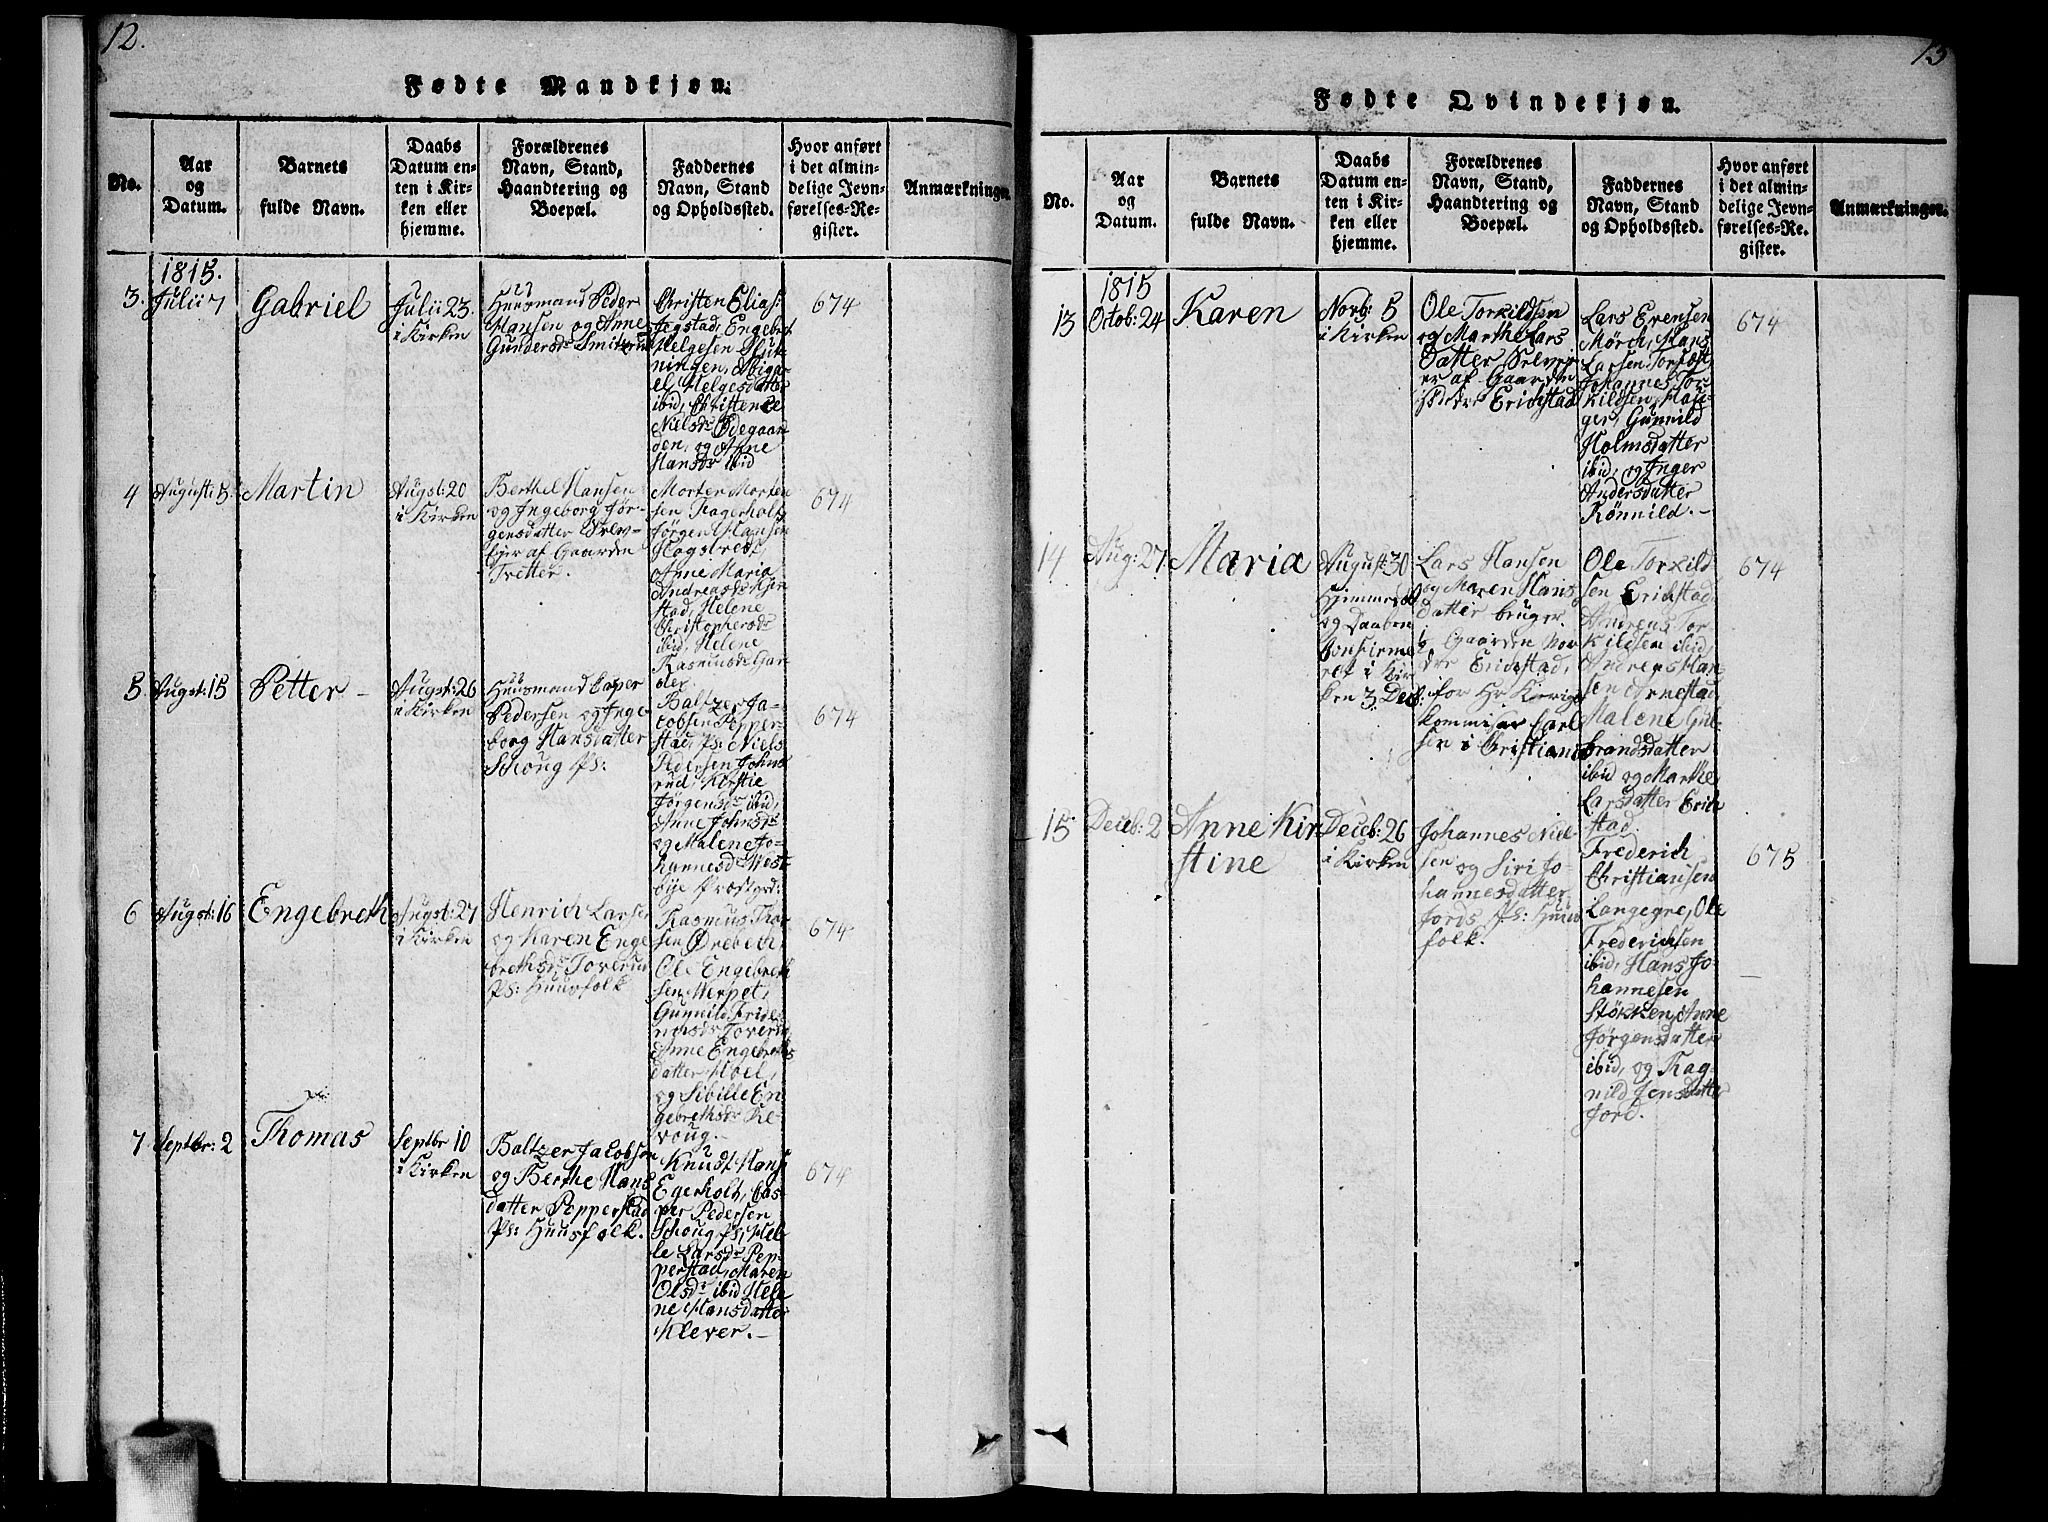 12.
Fødte Mandkjøn.
No.
Aar
og
Datum.
Barnets
fulde Navn.
Daabs
Datum en-
ten i Kir-
ken eller
hjemme.
Forældrenes
Navn, Stand,
Haandtering og
Boepæl.
Faddernes
Navn, Stand
og Opholdssted.
Hvor anført
i det almin-
delige Jevn-
førelses-Re-
gister.
Anmærkninger.
1815.
3.
Julii 7
Gabriel
Julii 23.
i Kirken
Huusmand Peder
Hansen og Anne
Gundersdr
Christen Elias:
Engebret
Helgesen
ningen, Abiga-
el Helgesdatter
ibid, Christence
Nielsdr Ødegaar-
den, og Anne
Hansdr ibid
674
4
August: 5.
Martin
August: 20
i Kirken
Berthel Hansen
og Ingeborg Jør-
gensdatter Selv-
ejer af Gaarden
Tretter.
Morten Morten
sen Fagerholt
Jørgen Hansen
Anne Maria
Andreasdr
stad, Helene
Christophersdr
ibid, Helene
Rasmusdr Gar-
der.
674
5.
Augst: 15
Petter –
Augst: 26
i Kirken
Huusmand Casper
Pedersen og Inge-
borg Hansdatter
Schoug Ps:
Baltzer Ja-
cobsen Pepper-
stad, Ps: Niels
Pedersen Johns
rud, Kirstie
Jørgensdr ibid,
Anne Johnsdr
og Malene Jo-
hannesd West-
bye Præstgrd:
674
6
Augst: 16
Engebreth
Augst: 27
i Kirken
Henrich Larsen
og Karen Enge
brethsdr Toverud
Ps: Huusfolk
Rasmus Thor
sen Ørebech
Ole Engebreth
sen Werpet,
Gunnild Fride-
richsdr Toverud
Anne Engebreths
datter Hoel,
og Sibille En-
gebrethsdr Ke-
voug.–
674
7
Septbr: 2
Thomas
Septbr 10
i Kirken
Baltzer Jacobsen
og Berthe Hans
datter Pepperstad
Ps: Huusfolk.
Knud Hans:
Egerholt, Cas-
per Pedersen
Schoug Ps, Hel-
le Larsdr Pep-
perstad, Maren
Olsdr ibid Hele
ne Hansdatter
Klever.–
674
13
Fødte Qvindekjøn.
No.
Aar
og
Datum.
Barnets
fulde Navn.
Daabs
Datum en-
ten i Kir-
ken eller
hjemme.
Forældrenes
Navn, Stand,
Haandtering og
Boepæl.
Faddernes
Navn, Stand
og Opholdssted.
Hvor anført
i det almin-
delige Jevn-
førelses-Re-
gister.
Anmærkninger.
1815
13
Octob: 24
Karen
Novb: 5
i Kirken
Ole Torkildsen
og Marthe Lars
datter Selvej-
er af Gaarden
Nedre Erichstad
Lars Evensen
Mørch, Hans
Larsen
Johannes Tor
kildsen Hau-
ger, Gunnild
Holmsdatter
ibid, og Inger
Andersdatter
Rønnild.–
674
14
Aug: 27
Maria
August: 30
Hjemmedøbt
og Daaben
Confirme
ret i Kir
ken 3 Decb:
Lars Hansen
og Maren Hans
datter bruger
½ Gaarden Nor
dre Erichstad,
for Hr Krrigs
kommisar Carl
sen i Christiania
Ole Torkild
sen Erichstad
Andreas Tor
kildsen ibid,
Andreas Han
sen Ørnestad
Malene Gul-
brandsdatter
ibid og Marthe
Larsdatter Erich
stad.
674
15.
Decb: 2
Anne Kir-
stine
Decb: 26
i Kirken
Johannes Niel-
sen og Siri Jo-
hannesdatter
Jords Ps: Huus
folk.
Frederich
Christiansen
Langegre, Ole
Frederichsen
ibid, Hans Jo-
hannesen
Støkken, Anne
Jørgensdatter
ibid, og Rag-
nild Jensdatter
Jord.
675